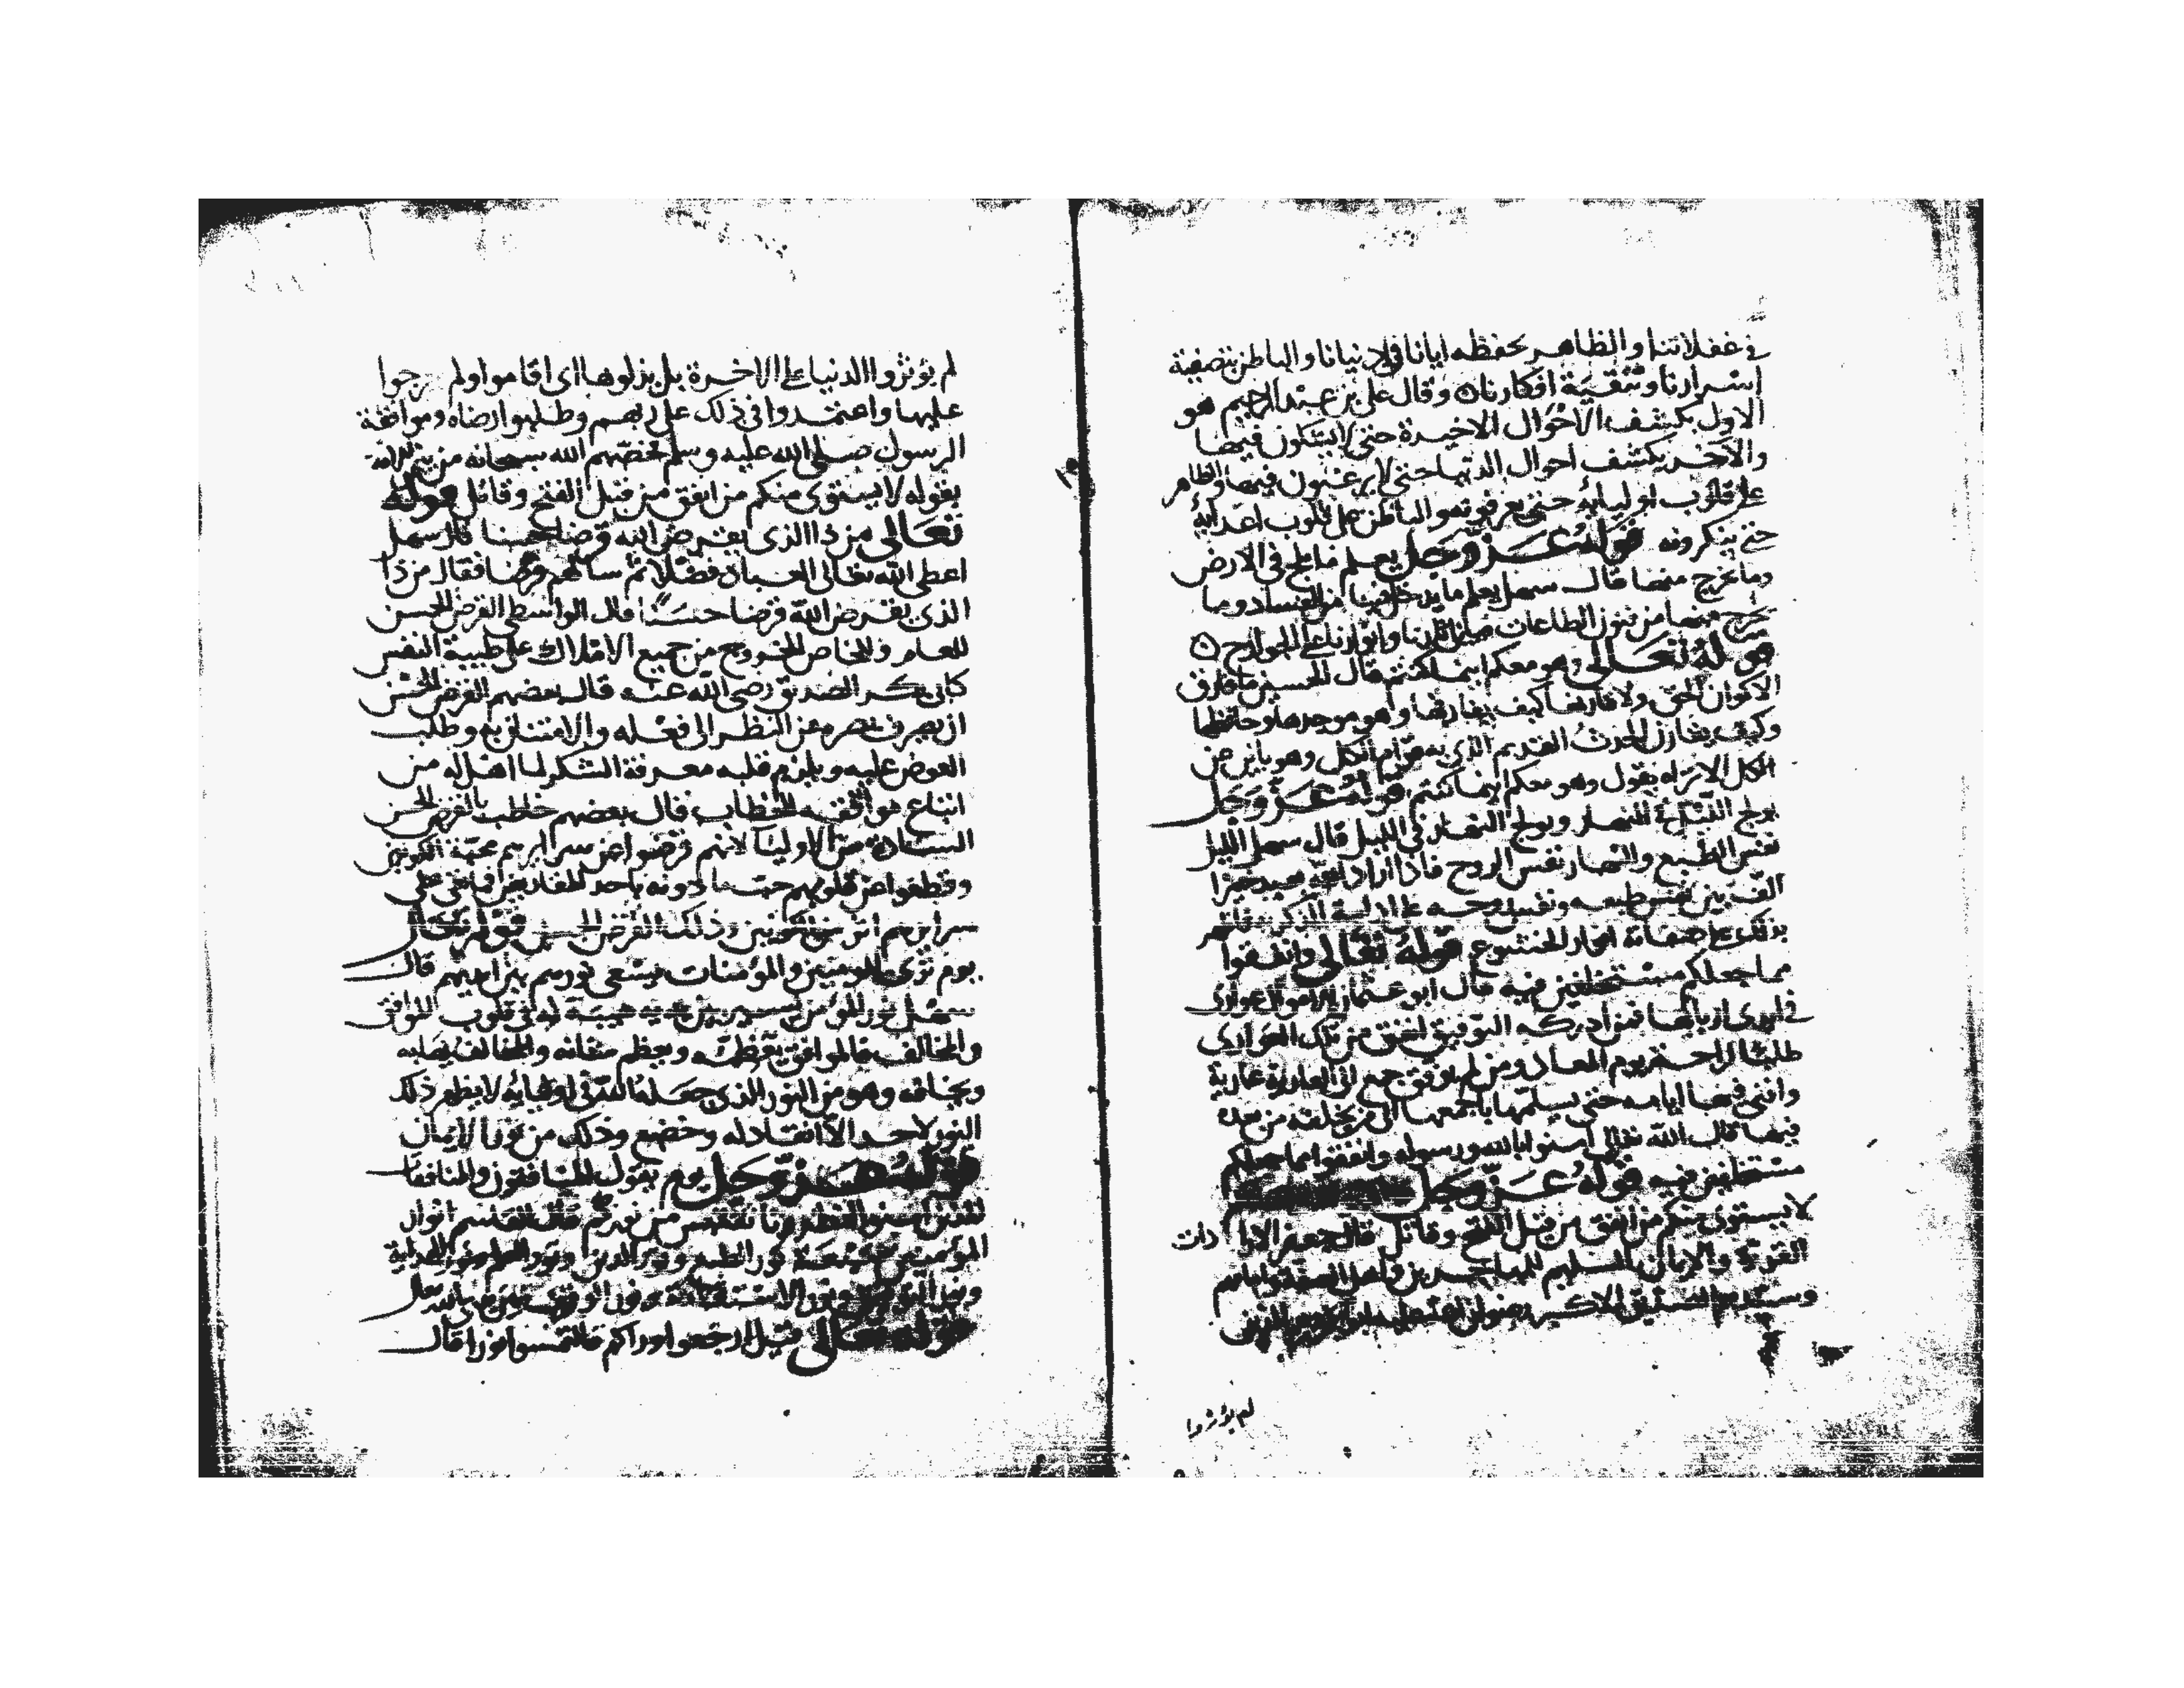 في غفلاتنا والظاهر بحفظه ايانا في دنيانا والباطن بتصفية
اسرارنا وتنقية افكارنا وقال علي بن عبد الرحيم هو
الاول بكشف الاحوال الاخيرة حتى لا يشكون فيها
والآخر بكشف احوال الدنيا حتى لا يرغبون فيها والظاهر
على قلوب اوليائه حتى يعرفونه والباطن على قلوب اعدائه
حتى ينكرونه قوله عز وجل يعلم ما يلج في الارض
وما يخرج منها قال سهل يعلم ما يدخل فينا من الفساد وما
يخرج منها من فنون الطاعات وانوارنا على الجوارح
قوله تعالى وهو معكم اينما كنتم قال الحسين ما فارق
الاكوان الحق ولا قارنها كيف يفارقها وهو موجدها وحافظها
وكيف يقارن الحدث القديم الذي به قوام الكل وهو باين عن
الكل الا تراه يقول وهو معكم اينما كنتم قوله عز وجل
يولج الليل في النهار ويولج النهار في الليل قال سهل الليل
نفس الطبع والنهار نفس الروح فاذا اراد الله بعبد خيرا
الف بين نفس طبعه ونفس روحه على ادامة الذكر
بذلك على انوار الخشوع قوله تعالى وانفقوا
مما جعلكم مستخلفين فيه قال ابو عثمان الاموال عواري
في ايدي اربابها فمن ادركه التوفيق انفق من تلك العواري
طلبا لراحته يوم المعاد ومن لم يوفق جمع الى العارية عارية
وافنى فيها ايامه حتى يسلمها باجمعها الى من يخلفه من بعده
فيها قال الله تعالى آمنوا بالله ورسوله وانفقوا مما جعلكم
مستخلفين فيه قوله عز وجل
لا يستوي منكم من انفق من قبل الفتح وقاتل قال جعفر
القوة والايمان للمهاجرين واهل الصفة
وسيدهم الصديق الاكبر رضوان الله عليه الذين
لم يؤثروا
لم يؤثروا الدنيا على الاخرة بل بذلوها اي اقاموا ولم يرجوا
عليها واعتمدوا في ذلك على ربهم وطلبوا رضاه وموافقة
الرسول صلى الله عليه وسلم فخصهم الله سبحانه من بين
بقوله لا يستوي منكم من انفق من قبل الفتح وقاتل قوله
تعالى من ذا الذي يقرض الله قرضا حسنا قال سهل
اعطى الله تعالى العباد فضلا ثم سالهم قرضا فقال من ذا
الذي يقرض الله قرضا حسنا قال الواسطي القرض الحسن
للعام وللخاص الخروج من جميع الاملاك على طيبة النفس
كابي بكر الصديق رضي الله عنه قال بعضهم القرض الحسن
ان يصرف بصره عن النظر الى فعله والامتنان به وطلب
العوض عليه ويلزم قلبه معرفة الشكر لما اهل له من
اتباع موافقة الخطاب قال بعضهم خاطب بالقرض الحسن
السادة من الاولياء لانهم قرضوا عن سرايرهم محبة الكونين
وقطعوا عن قلوبهم حب ما دونه باحد المقاريض فما بقي على
سرايرهم اثر وذلك القرض الحسن قوله تعالى
يوم ترى المؤمنين والمؤمنات يسعى نورهم بين ايديهم قال
سهل نور المؤمن هيبة له في قلوب الموافق
والمخالف فالموافق يعظمه ويعظم شانه والمخالف يهابه
ويخافه وهو من النور الذي جعله الله في اوليائه لا يظهر ذلك
النور لاحد الا انقاد له وخضع وذلك من نور الايمان
قوله عز وجل يوم يقول المنافقون والمنافقات
للذين آمنوا انظرونا نقتبس من نوركم قال القاسم انوار
المؤمنين نور الطبع ونور الدين
ونور الاستقامة
قوله تعالى قيل ارجعوا وراكم فالتمسوا نورا قال